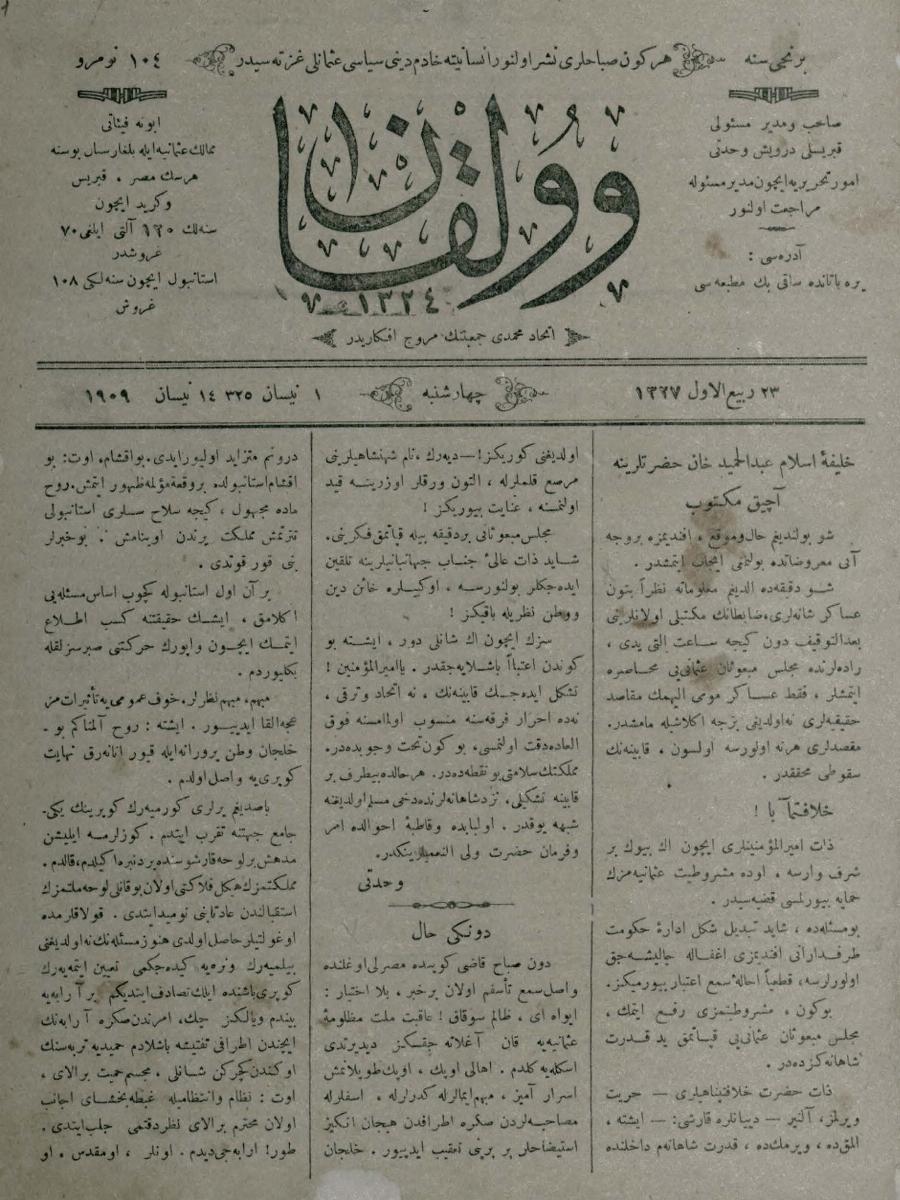 برنجی سنه
هر كون صباحلری نشر اولنور انسانيته خادم دينی سياسی عثمانلی غزته سيدر
١٠٤ نومرو
صاحب و مدير مسئولی
قبريسلی درويش وحدتی
امور تحريريه ايچون مدير مسئوله
مراجعت اولنور
آدره سی :
ره باتانده ساقی بك مطبعه سی
وولقان
١٣٢٤
اتحاد محمدی جمعيتنك مروج افكاريدر
ابونه فيئاتی
ممالك عثمانيه ايله بلغارستان بوسنه
هرسك مصر ، قبريس
و كريد ايچون
سنه لك ١٢٠ آلتی ايلغی ٧٠
غروشدر
استانبول ايچون سنه لكی ١٠٨
غروش
٢٣ ربيع الاول ١٣٢٧
چهارشنبه
١ نيسان ٣٢٥ ١٤ نيسان ١٩٠٩
خليفۀ اسلام عبدالحميد خان حضرتلرينه
آچيق مكتوب
شو بولنديغم حال و موقع ، افنديمزه بروجه
آتی معروضاتده بولنمغی ايجاب ايتمشدر .
شو دقيقه ده الديغم معلوماته نظراً بتون
عساكر شانه لری، ضابطانك مكتبلی اولانلرينی
بعدالتوقيف دون كيجه ساعت التی يدی ،
راده لرنده مجلس مبعوثان عثمانی يی محاصره
ايتمشلر ، فقط عساكر مومی اليهمك مقاصد
حقيقيه لری نه اولديغی بزجه اكلاشيله مامشدر.
مقصدلری هر نه اولورسه اولسون ، قابينه نك
سقوطی محققدر .
خلافتمآ با !
ذات اميرالمؤمنينلری ايچون اك بيوك بر
شرف وارسه ، اوده مشروطيت عثمانيه مزك
حمايه بيورلمسی قضيه سيدر .
بومسئله ده ، شايد تبديل شكل ادارۀ حكومت
طرفدارانی افنديمزی اغفاله چاليشه جق
اولورلرسه، قطعياً احالۀ سمع اعتبار بيورميكز.
بوكون ، مشروطيتمزی رفع ايتمك ،
مجلس مبعوثان عثمانی يی قپاتمق يد قدرت
شاهانه كزده در .
ذات حضرت خلافتپناهيلری — حريت
ويرلمز، آلنير — ديانلره قارشی: — ايشته ،
المق ده ، ويرمك ده ، قدرت شاهانه م داخلنده
اولديغی كوريكز ! — ديه رك ، نام شهنشاهيلرينی
مرصع قلملرله ، التون ورقلر اوزرينه قيد
اولنمسنه ، عنايت بيوريكز !
مجلس مبعوثانی بر دقيقه بيله قپاتمق فكرينی،
شايد ذات عالیٔ جناب جهانبانيلرينه تلقين
ايده جكلر بولنورسه ، اوكيلره خائن دين
ووطن نظريله باقيكز !
سزك ايچون اك شانلی دور ، ايشته بو
كوندن اعتباراً باشلايه جقدر . يا اميرالمؤمنين !
تشكل ايده جك قابينه نك ، نه اتحاد و ترقی ،
نه ده احرار فرقه سنه منسوب اولمامسنه فوق
العاده دقت اولنمسی، بوكون تحت وجوبده در.
مملكتك سلامتی بو نقطه ده در. هر حالده بيطرف بر
قابينه تشكيلی، نزد شاهانه لرنده دخی مسلم اولديغنه
شبهه يوقدر . اولبابده وقاطبۀ احوالده امر
و فرمان حضرت ولی النعميلرينكدر.
وحدتی
دونكی حال
دون صباح قاضی كوينده مصرلی اوغلنده
واصل سمع تأسفم اولان بر خبر ، بلا اختيار :
ايواه ای ، ظالم سوقاق ! عاقبت ملت مظلومۀ
عثمانيه يه قان آغلاته جقسكز ديديرتدی
اسكله يه كلدم . اهالی اوپك ، اوپك طوپلانمش
اسرار آميز ، مبهم ايمالرله كدرلرله ، اسفلرله
مصاحبه لردن صكره اطرافدن هيجان انكيز
استيضاحلر بر برينی تعقيب ايدييور . خلجان
درونم متزايد اوليورايدی. بو اقشام، اوت: بو
اقشام استانبولده بر وقعۀ مؤلمه ظهور ايتمش. روح
ماده مجهول ، كيجه سلاح سسلری استانبولی
تترتمش مملكت يرندن اوينامش . بو خبرلر
بنی قورقوتدی .
بر آن اول استانبوله كچوب اساس مسئله يی
اكلامق ، ايشك حقيقتنه كسب اطلاع
ايتمك ايچون واپورك حركتنی صبرسزلقله
بكليوردم .
مبهم، مبهم نظرلر. خوف عمومی يه تأثيرات مز
عجه القا ايدييور . ايشته : روح آلمناكم بو ـ
خلجان وطن پرورانه ايله قيور انانه رق نهايت
كوپری يه واصل اولدم .
باصديغم يرلری كورميه رك كوپرينك يكی ـ
جامع جهتنه تقرب ايتدم . كوزلرمه ايليشن
مدهش بر لوحه قارشوسنده بردنبره اكيلدم، قالدم.
مملكتمزك هيكل فلاكتی اولان بو قانلی لوحه ملتمزك
استقبالندن عادتا بنی نوميد ايتدی . قولاقلرمده
اوغولتيلر حاصل اولدی هنوز مسئله نك نه اولديغنی
بيلميه رك و نره يه كيده جكمی تعيين ايتميه رك
كوپری باشنده ايلك تصادف ايتديكم بر آرابه يه
بيندم و يالكز چك، امرندن صكره آرابه نك
ايچندن اطرافی تفتيشه باشلادم حميديه تربه سنك
اوكندن كچركن شانلی . مجسم حميت بر آلای ،
اوت : نظام و انتظاميله غبطه بخشای اجانب
اولان محترم بر آلای نظر دقتمی جلب ايتدی .
طور! ارابه جی ديدم . اونلر ، او مقدس ، او